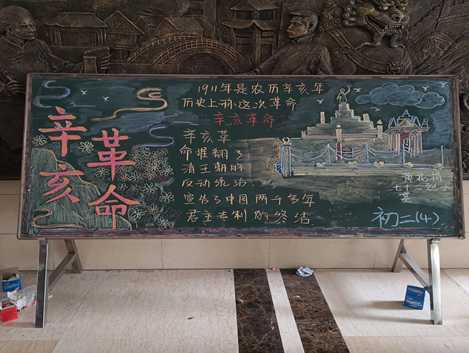 辛亥
革命
1911年是农历辛亥年
历史上称这次革命
辛亥革命
辛亥革
命推翻了
清王朝的
反动统治
宣告了中国两千多年
君主专制的终结
初二(4)